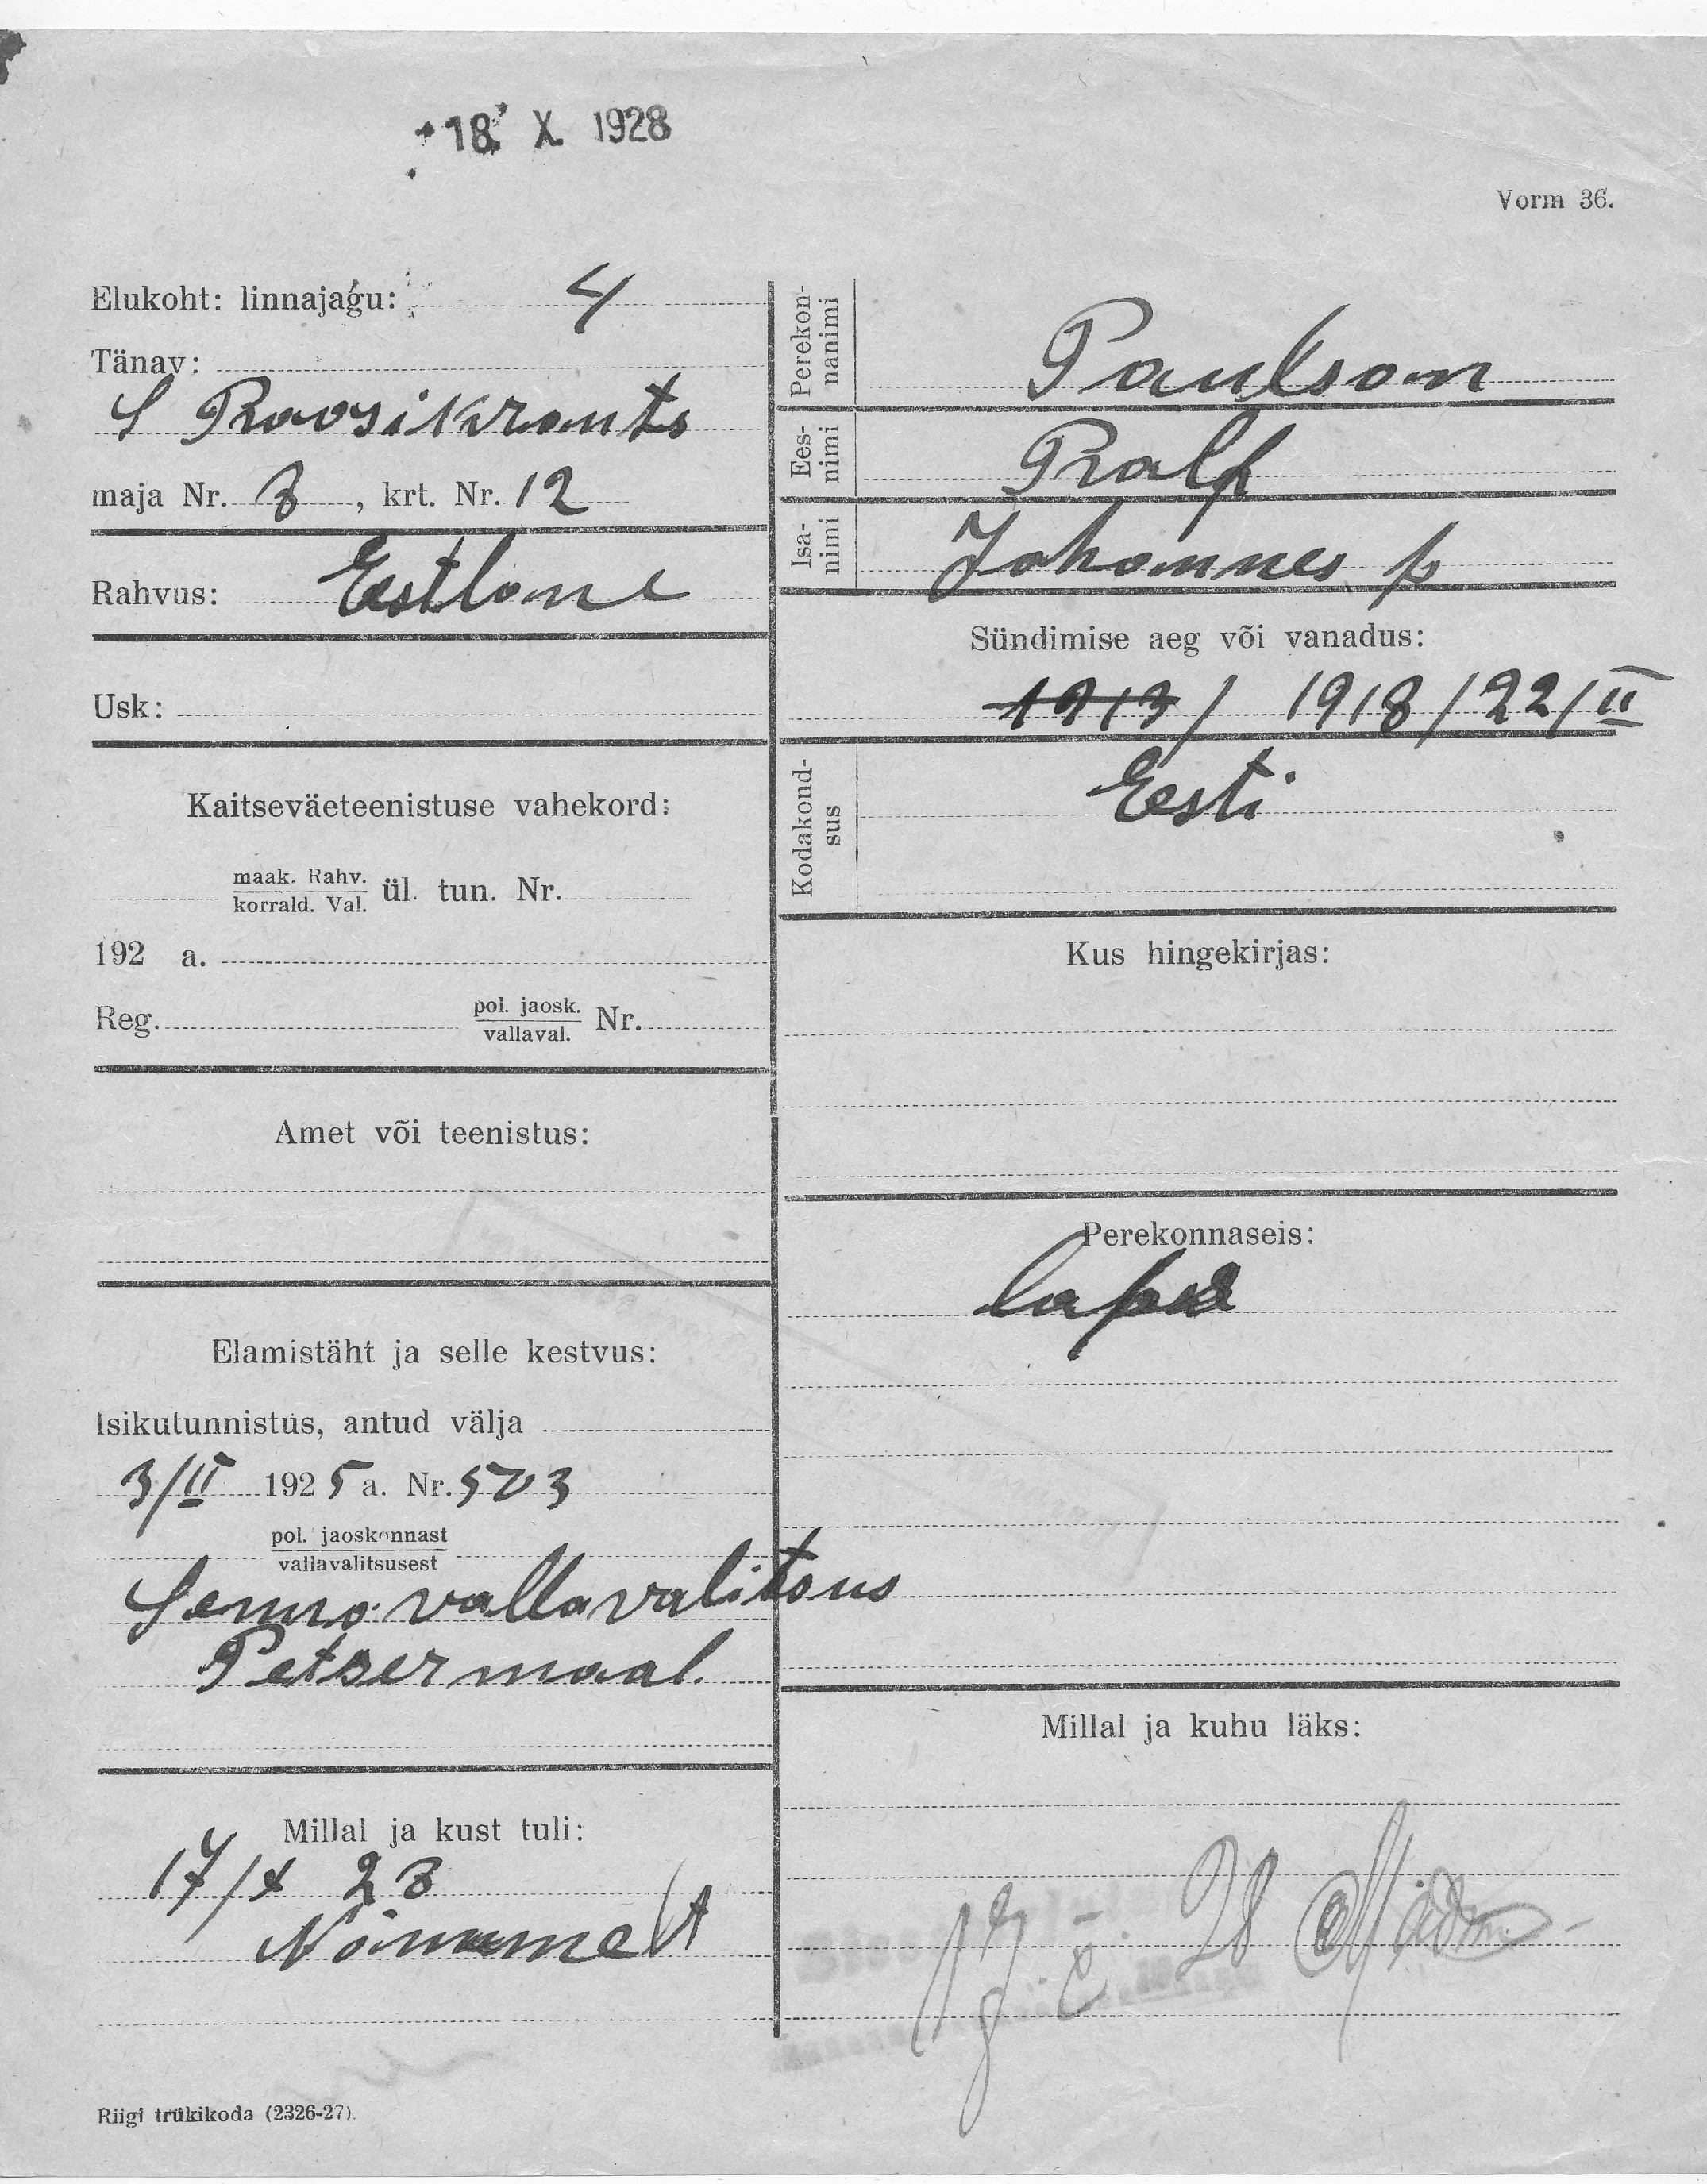 18. X. 1928
Vorm 36.
Elukoht: linnajagu: 4
Tänav:
S Roosikrants
maja Nr. 8, krt. Nr. 12
Rahvus: Eestlane
Usk:
Kaitseväeteenistuse vahekord:
maak. Rahv.
korrald. Val.
ül. tun. Nr.
192 a.
Reg. pol. jaosk. Nr.
vallaval.
Amet või teenistus:
Elamistäht ja selle kestvus:
Isikutunnistus, antud välja
3/II 1925 a. Nr. 503
pol. jaoskonnast
vallavalitsusest
Senno vallavalitsus
Petserimaal.
Millal ja kust tuli:
17/X 28
Nõmmelt
Riigi trükikoda (2326-27).
Perekon-
nanimi
Paulson
Ees-
nimi
Ralf
Isa-
nimi
Johannes p
Sündimise aeg või vanadus:
1913/ 1918/22/II
Kodakond-
sus
Eesti
Kus hingekirjas:
Perekonnaseis:
laps
Millal ja kuhu läks:
X. 28